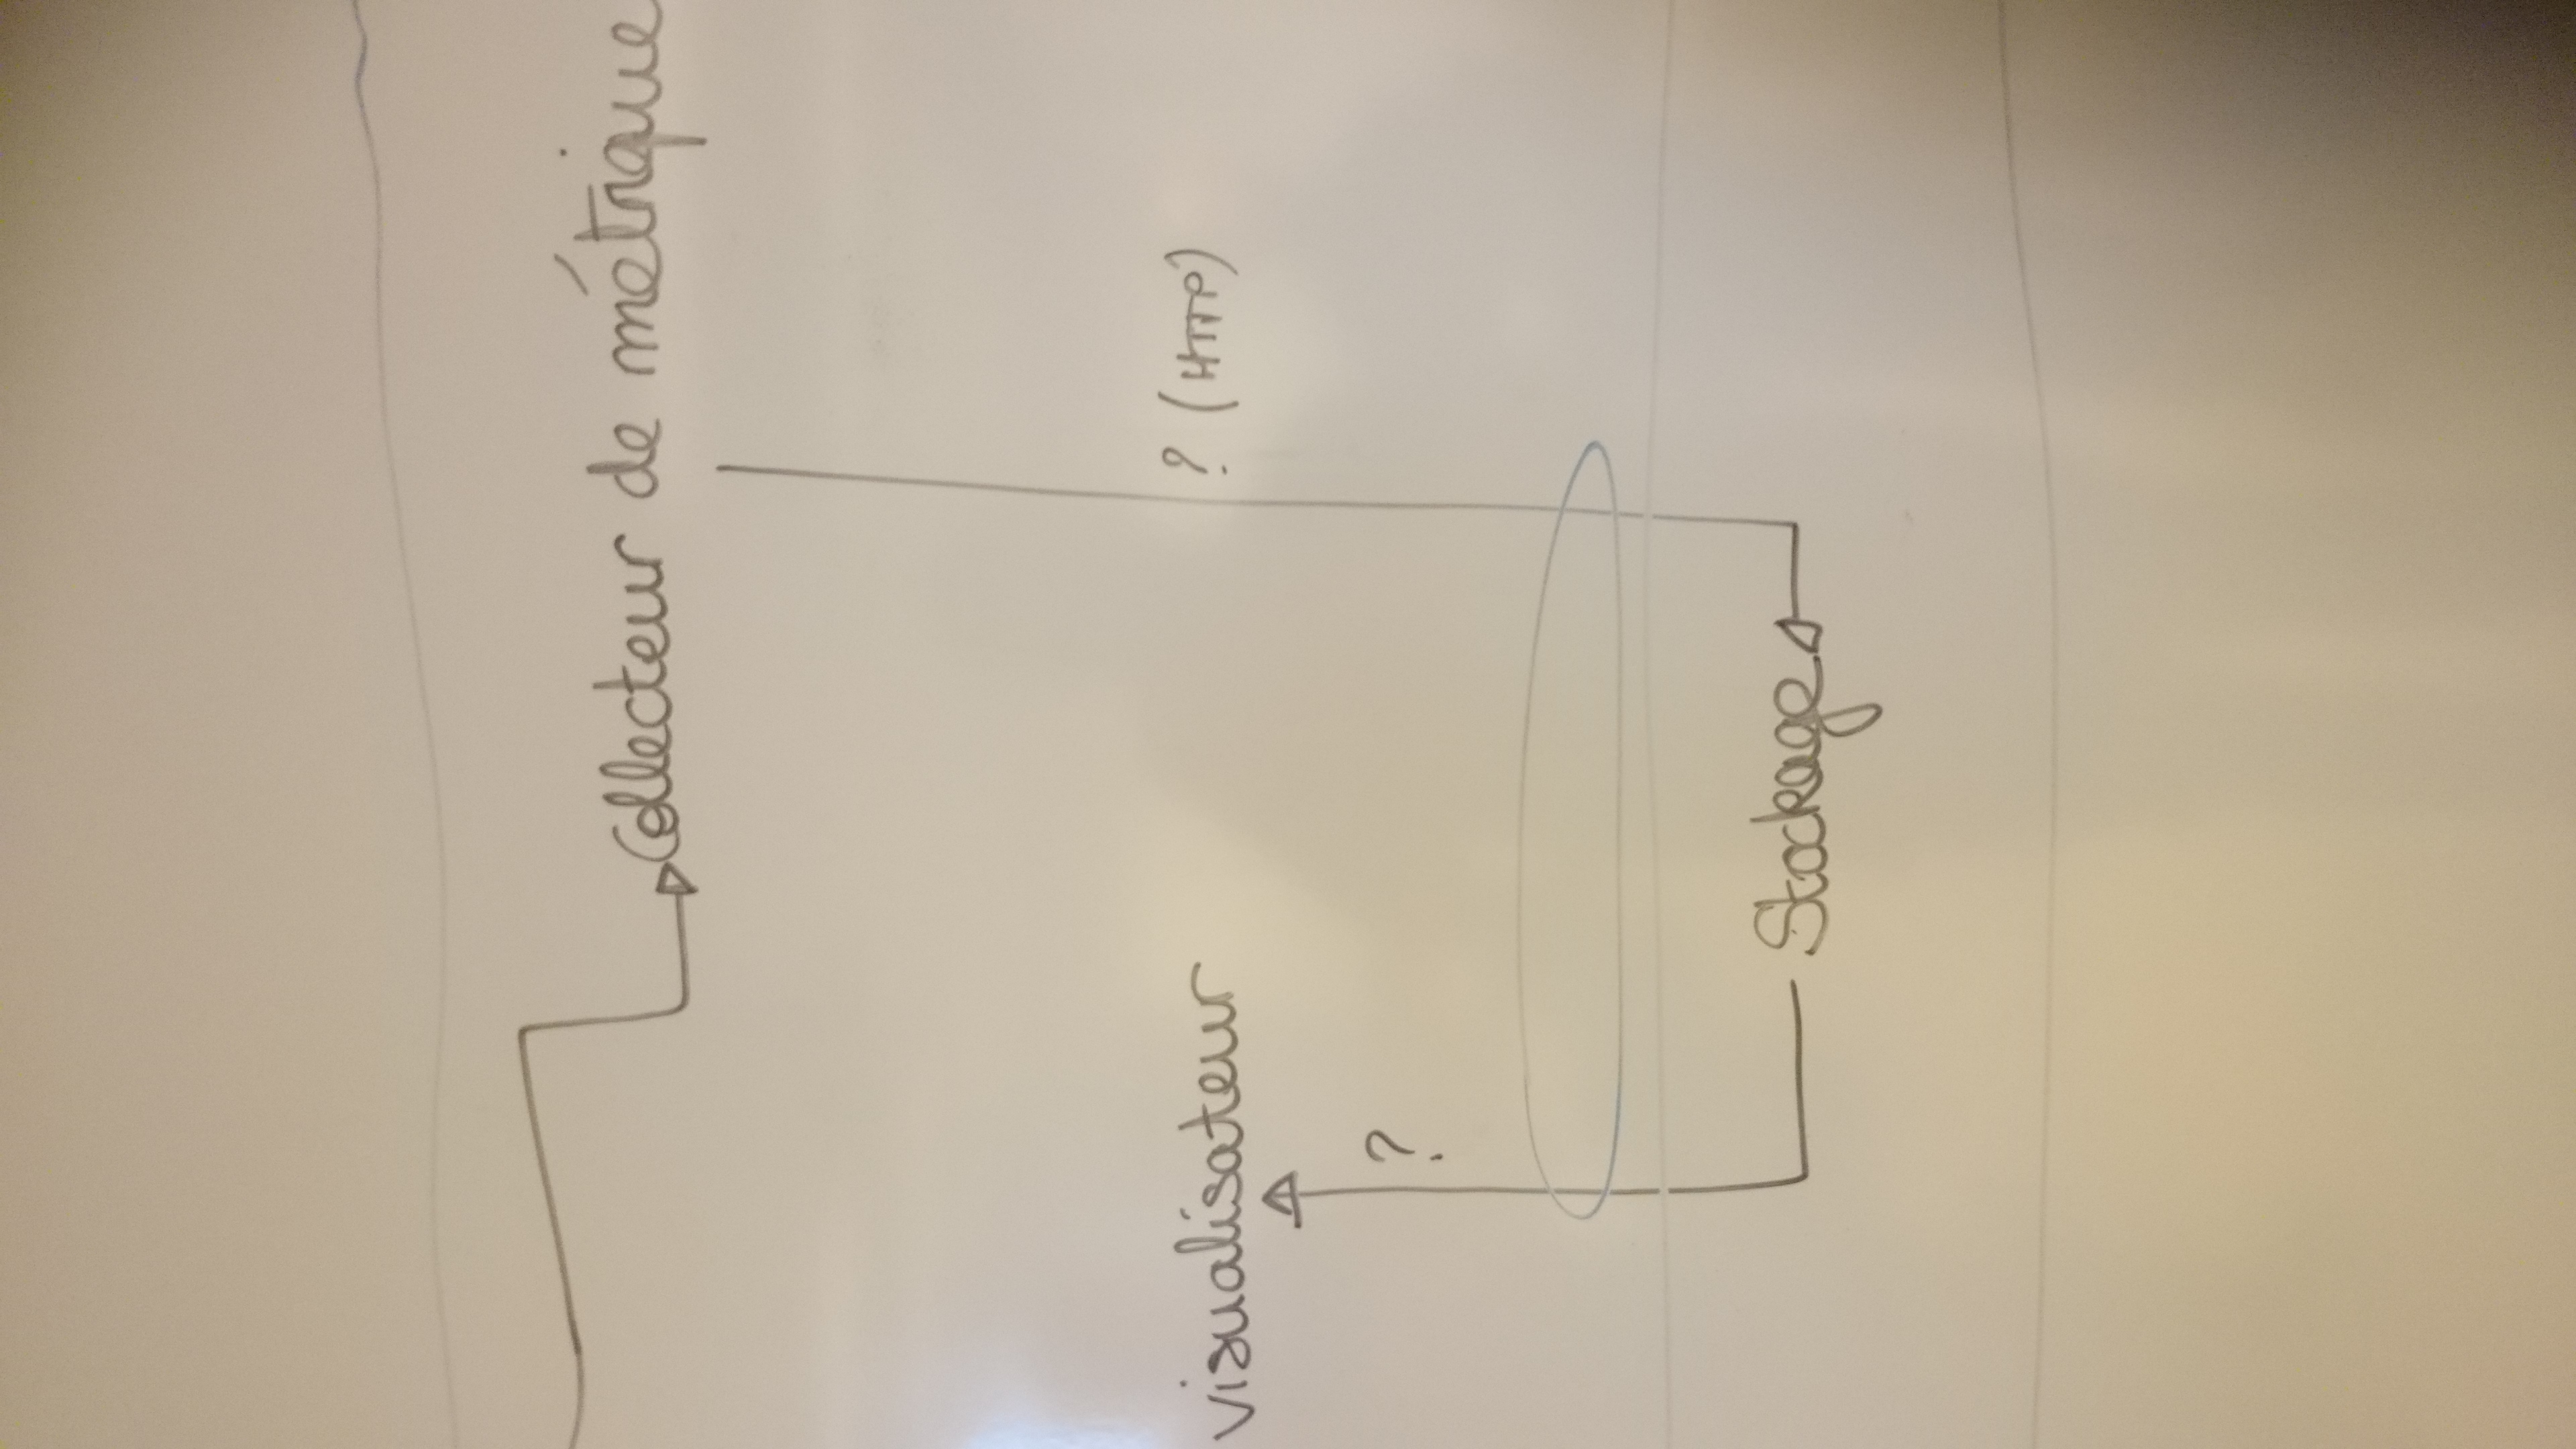 Collecteur de métrique
visualisateur
? (HTTP)
?
Stockage